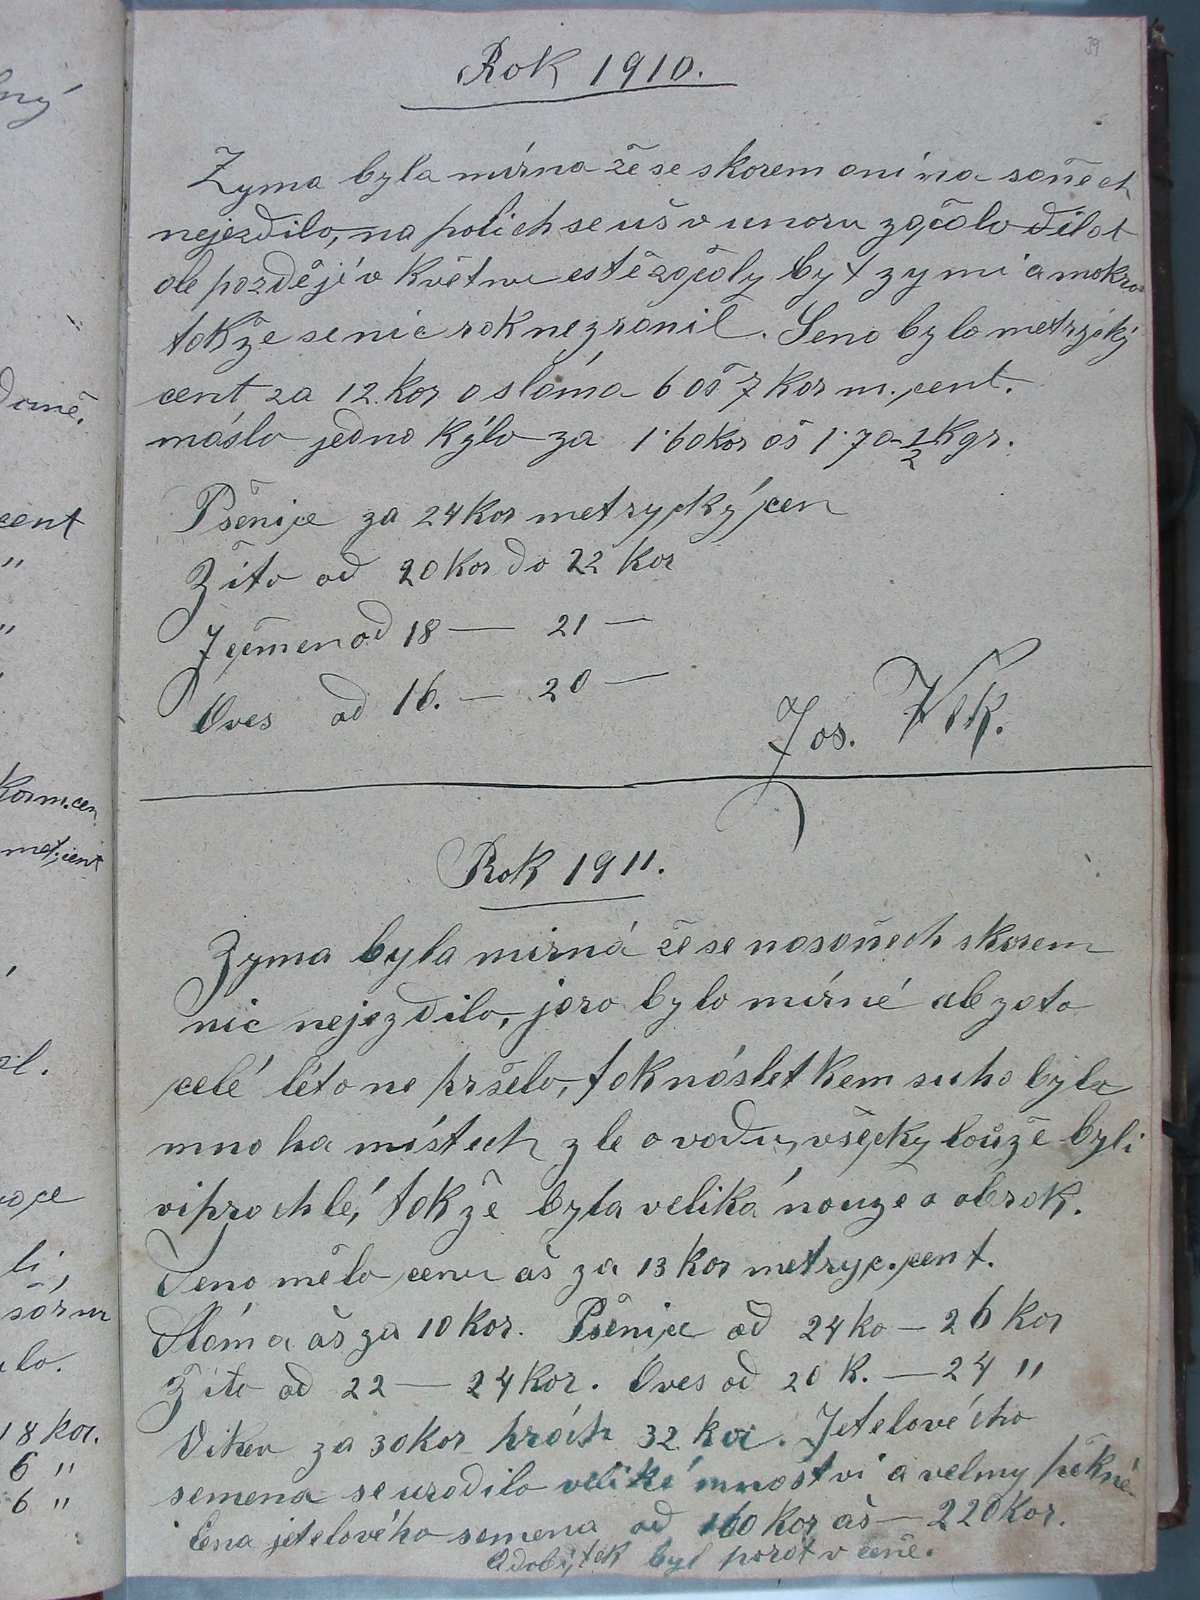 39
Rok 1910.
Zyma byla mírna že se skorem ani na saňech
nejezdilo, na polich se uš v unoru začalo ďilat
ale pozdějí v květnu estě začaly být zymi a mokro
takže se nic rok nezranil. Seno bylo metrycký
cent za 12 kor a sláma 6 aš 7 kor m. cent.
máslo jedno kýlo za 1·60 kor aš 1·70 1/2 kgr.
Pšenice za 24 kor metrycký cen
Žito od 20 kor do 22 kor
Ječmen od 18 — 21 —
Oves od 16. — 20 —
Jos. Vlk.
Rok 1911.
Zyma byla mirná že se na saňech skorem
nic nejezdilo, jaro bylo mírné ale zato
celé léto ne pršelo, tak násletkem sucha bylo
mno ha místech zle o vodu, všecky louže byli
viprochlé, tak že byla veliká nouze o obrok.
Seno mělo cenu aš za 13 kor metryc. cent.
Sláma aš za 10 kor. Pšenice od 24 ko — 26 kor
Žito od 22 — 24 kor. Oves od 20 k. — 24 "
Vikev za 30 kor hrách 32 kor. Jetelového
semena se urodilo veliké mnoství a velmy pěkné
Cena jetelového semena od 160 kor aš — 220 kor.
a dobytek byl porát v ceňe.
ný
cent
"
"
kor m. cen
met. cent
li,
18 kor.
6 "
6 "